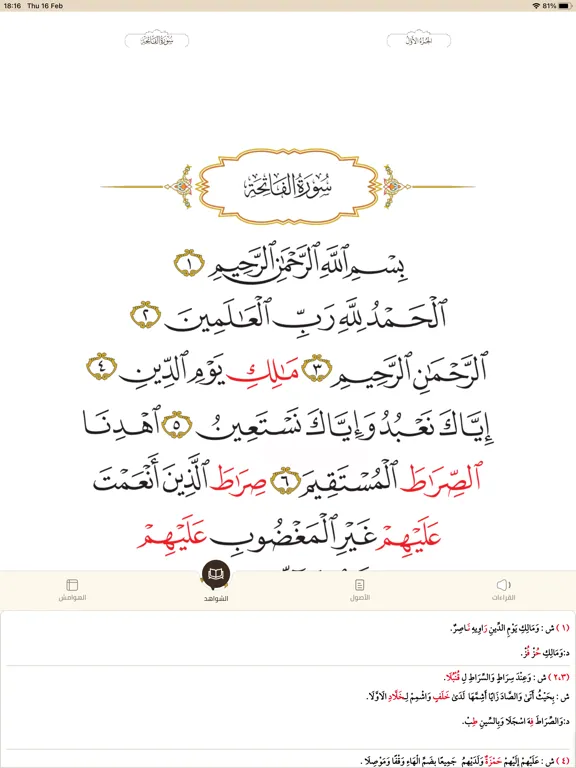 18:16 Thu 16 Feb 81%
الجزء الأول
سورة الفاتحة
سُورَةُ الفَاتِحَةِ
بِسْمِ ٱللَّهِ ٱلرَّحْمَٰنِ ٱلرَّحِيمِ ١
ٱلْحَمْدُ لِلَّهِ رَبِّ ٱلْعَٰلَمِينَ ٢
ٱلرَّحْمَٰنِ ٱلرَّحِيمِ ٣ مَٰلِكِ يَوْمِ ٱلدِّينِ ٤
إِيَّاكَ نَعْبُدُ وَإِيَّاكَ نَسْتَعِينُ ٥ ٱهْدِنَا
ٱلصِّرَٰطَ ٱلْمُسْتَقِيمَ ٦ صِرَٰطَ ٱلَّذِينَ أَنْعَمْتَ
عَلَيْهِمْ غَيْرِ ٱلْمَغْضُوبِ عَلَيْهِمْ
القراءات
الأصول
الشواهد
الهوامش
(١) ش : وَمَالِكِ يَوْمِ الدِّينِ رَاوِيهِ نَاصِرٌ.
د:وَمَالِكِ حُزْ فُزْ.
(٢،٣) ش : وَعِنْدَ سِرَاطِ وَالسِّرَاطَ لِ قُنْبُلَا.
ش : بِحَيْثُ أَتَى وَالصَّادَ زَايًا أَشِمَّهَا لَدَىٰ خَلَفٍ وَاشْمِمْ لِخَلَّادِ الَاوَّلَا.
د:وَالصِّرَاطَ فِهَ اسْجَلَا وَبِالسِّينِ طِبْ.
(٤) ش : عَلَيْهِمْ إِلَيْهِمْ حَمْزَةٌ وَلَدَيْهِمُ جَمِيعًا بِضَمِّ الْهَاءِ وَقْفًا وَمَوْصِلَا .